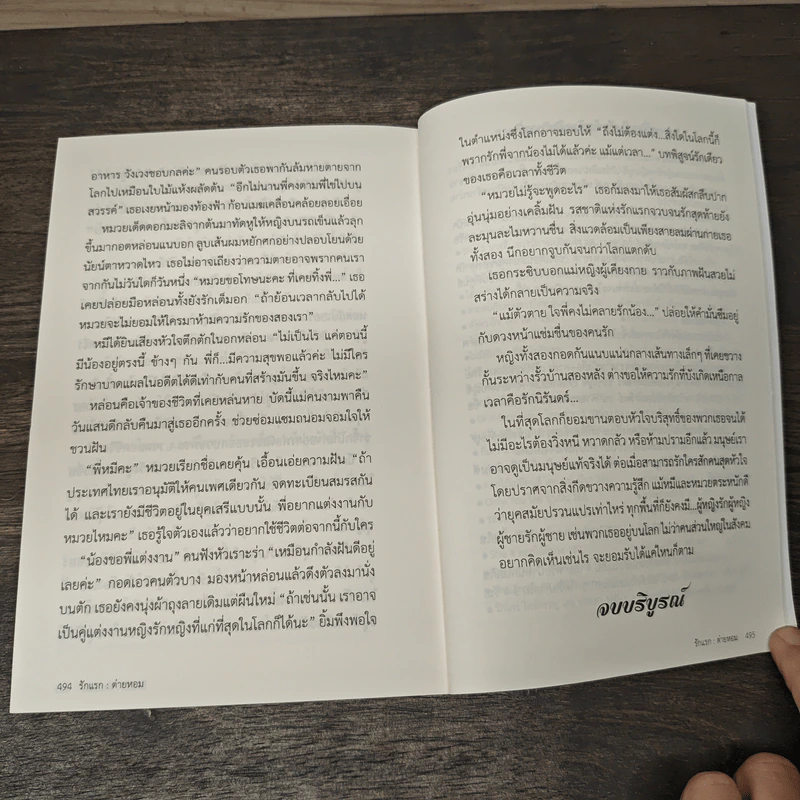 อาหาร วังเวงชอบกลค่ะ” คนรอบตัวเธอพากันล้มหายตายจาก
โลกไปเหมือนใบไม้แห้งผลัดต้น “อีกไม่นานพี่คงตามพี่ใช่ไปบน
สวรรค์” เธอเงยหน้ามองท้องฟ้า ก้อนเมฆเคลื่อนคล้อยลอยเอื่อย
หมวยเด็ดดอกมะลิจากต้นมาทัดหูให้หญิงบนรถเข็นแล้วลุก
ขึ้นมากอดหล่อนแนบอก ลูบเส้นผมหยักศกอย่างปลอบโยนด้วย
นัยน์ตาหวาดไหว เธอไม่อาจเถียงว่าความตายอาจพรากคนเรา
จากกันไม่วันใดก็วันหนึ่ง “หมวยขอโทษนะคะ ที่เคยทิ้งพี่...” เธอ
เคยปล่อยมือหล่อนทั้งยังรักเต็มอก “ถ้าย้อนเวลากลับไปได้
หมวยจะไม่ยอมให้ใครมาห้ามความรักของสองเรา”
หมีได้ยินเสียงหัวใจตึกตักในอกหล่อน “ไม่เป็นไร แค่ตอนนี้
มีน้องอยู่ตรงนี้ ข้างๆ กัน พี่ก็...มีความสุขพอแล้วค่ะ ไม่มีใคร
รักษาบาดแผลในอดีตได้ดีเท่ากับคนที่สร้างมันขึ้น จริงไหมคะ”
หล่อนคือเจ้าของชีวิตที่เคยหล่นหาย บัดนี้แม่คนงามพาคืน
วันแสนดีกลับคืนมาสู่เธออีกครั้ง ช่วยซ่อมแซมถนอมจอมใจให้
ชวนฝัน
“พี่หมีคะ” หมวยเรียกชื่อเคยคุ้น เอื้อนเอ่ยความฝัน “ถ้า
ประเทศไทยเราอนุมัติให้คนเพศเดียวกัน จดทะเบียนสมรสกัน
ได้ และเรายังมีชีวิตอยู่ในยุคเสรีแบบนั้น พี่อยากแต่งงานกับ
หมวยไหมคะ” เธอรู้ใจตัวเองแล้วว่าอยากใช้ชีวิตต่อจากนี้กับใคร
“น้องขอพี่แต่งงาน” คนฟังหัวเราะร่า “เหมือนกำลังฝันดีอยู่
เลยค่ะ” กอดเอวคนตัวบาง มองหน้าหล่อนแล้วดึงตัวลงมานั่ง
บนตัก เธอยังคงนุ่งผ้าถุงลายเดิมแต่ผืนใหม่ “ถ้าเช่นนั้น เราอาจ
เป็นคู่แต่งงานหญิงรักหญิงที่แก่ที่สุดในโลกก็ได้นะ” ยิ้มพึงพอใจ
494 รักแรก : ต่ายหอม
ในตำแหน่งซึ่งโลกอาจมอบให้ “ถึงไม่ต้องแต่ง...สิ่งใดในโลกนี้ก็
พรากรักพี่จากน้องไม่ได้แล้วค่ะ แม้แต่เวลา...” บทพิสูจน์รักเดียว
ของเธอคือเวลาทั้งชีวิต
“หมวยไม่รู้จะพูดอะไร” เธอก้มลงมาให้เธอสัมผัสกลีบปาก
อุ่นนุ่มอย่างเคลิ้มฝัน รสชาติแห่งรักแรกจวบจนรักสุดท้ายยัง
ละมุนละไมหวานชื่น สิ่งแวดล้อมเป็นเพียงสายลมผ่านกายเธอ
ทั้งสอง นึกอยากจูบกันจนกว่าโลกแตกดับ
เธอกระซิบบอกแม่หญิงผู้เคียงกาย ราวกับภาพฝันสวยไม่
สร่างได้กลายเป็นความจริง
“แม้ตัวตาย ใจพี่คงไม่คลายรักน้อง...” ปล่อยให้คำมั่นซึมอยู่
กับดวงหน้าแช่มชื่นของคนรัก
หญิงทั้งสองกอดกันแนบแน่นกลางเส้นทางเล็กๆ ที่เคยขวาง
กั้นระหว่างรั้วบ้านสองหลัง ต่างขอให้ความรักที่บังเกิดเหนือกาล
เวลาคือรักนิรันดร์...
ในที่สุดโลกก็ยอมขานตอบหัวใจบริสุทธิ์ของพวกเธอจนได้
ไม่มีอะไรต้องวิ่งหนี หวาดกลัว หรือห้ามปรามอีกแล้ว มนุษย์เรา
อาจดูเป็นมนุษย์แท้จริงได้ ต่อเมื่อสามารถรักใครสักคนสุดหัวใจ
โดยปราศจากสิ่งกีดขวางความรู้สึก แม้หมีและหมวยตระหนักดี
ว่ายุคสมัยปรวนแปรเท่าไหร่ ทุกพื้นที่ก็ยังคงมี...ผู้หญิงรักผู้หญิง
ผู้ชายรักผู้ชาย เช่นพวกเธออยู่บนโลก ไม่ว่าคนส่วนใหญ่ในสังคม
อยากคิดเห็นเช่นไร จะยอมรับได้แค่ไหนก็ตาม
จบบริบูรณ์
รักแรก : ต่ายหอม 495